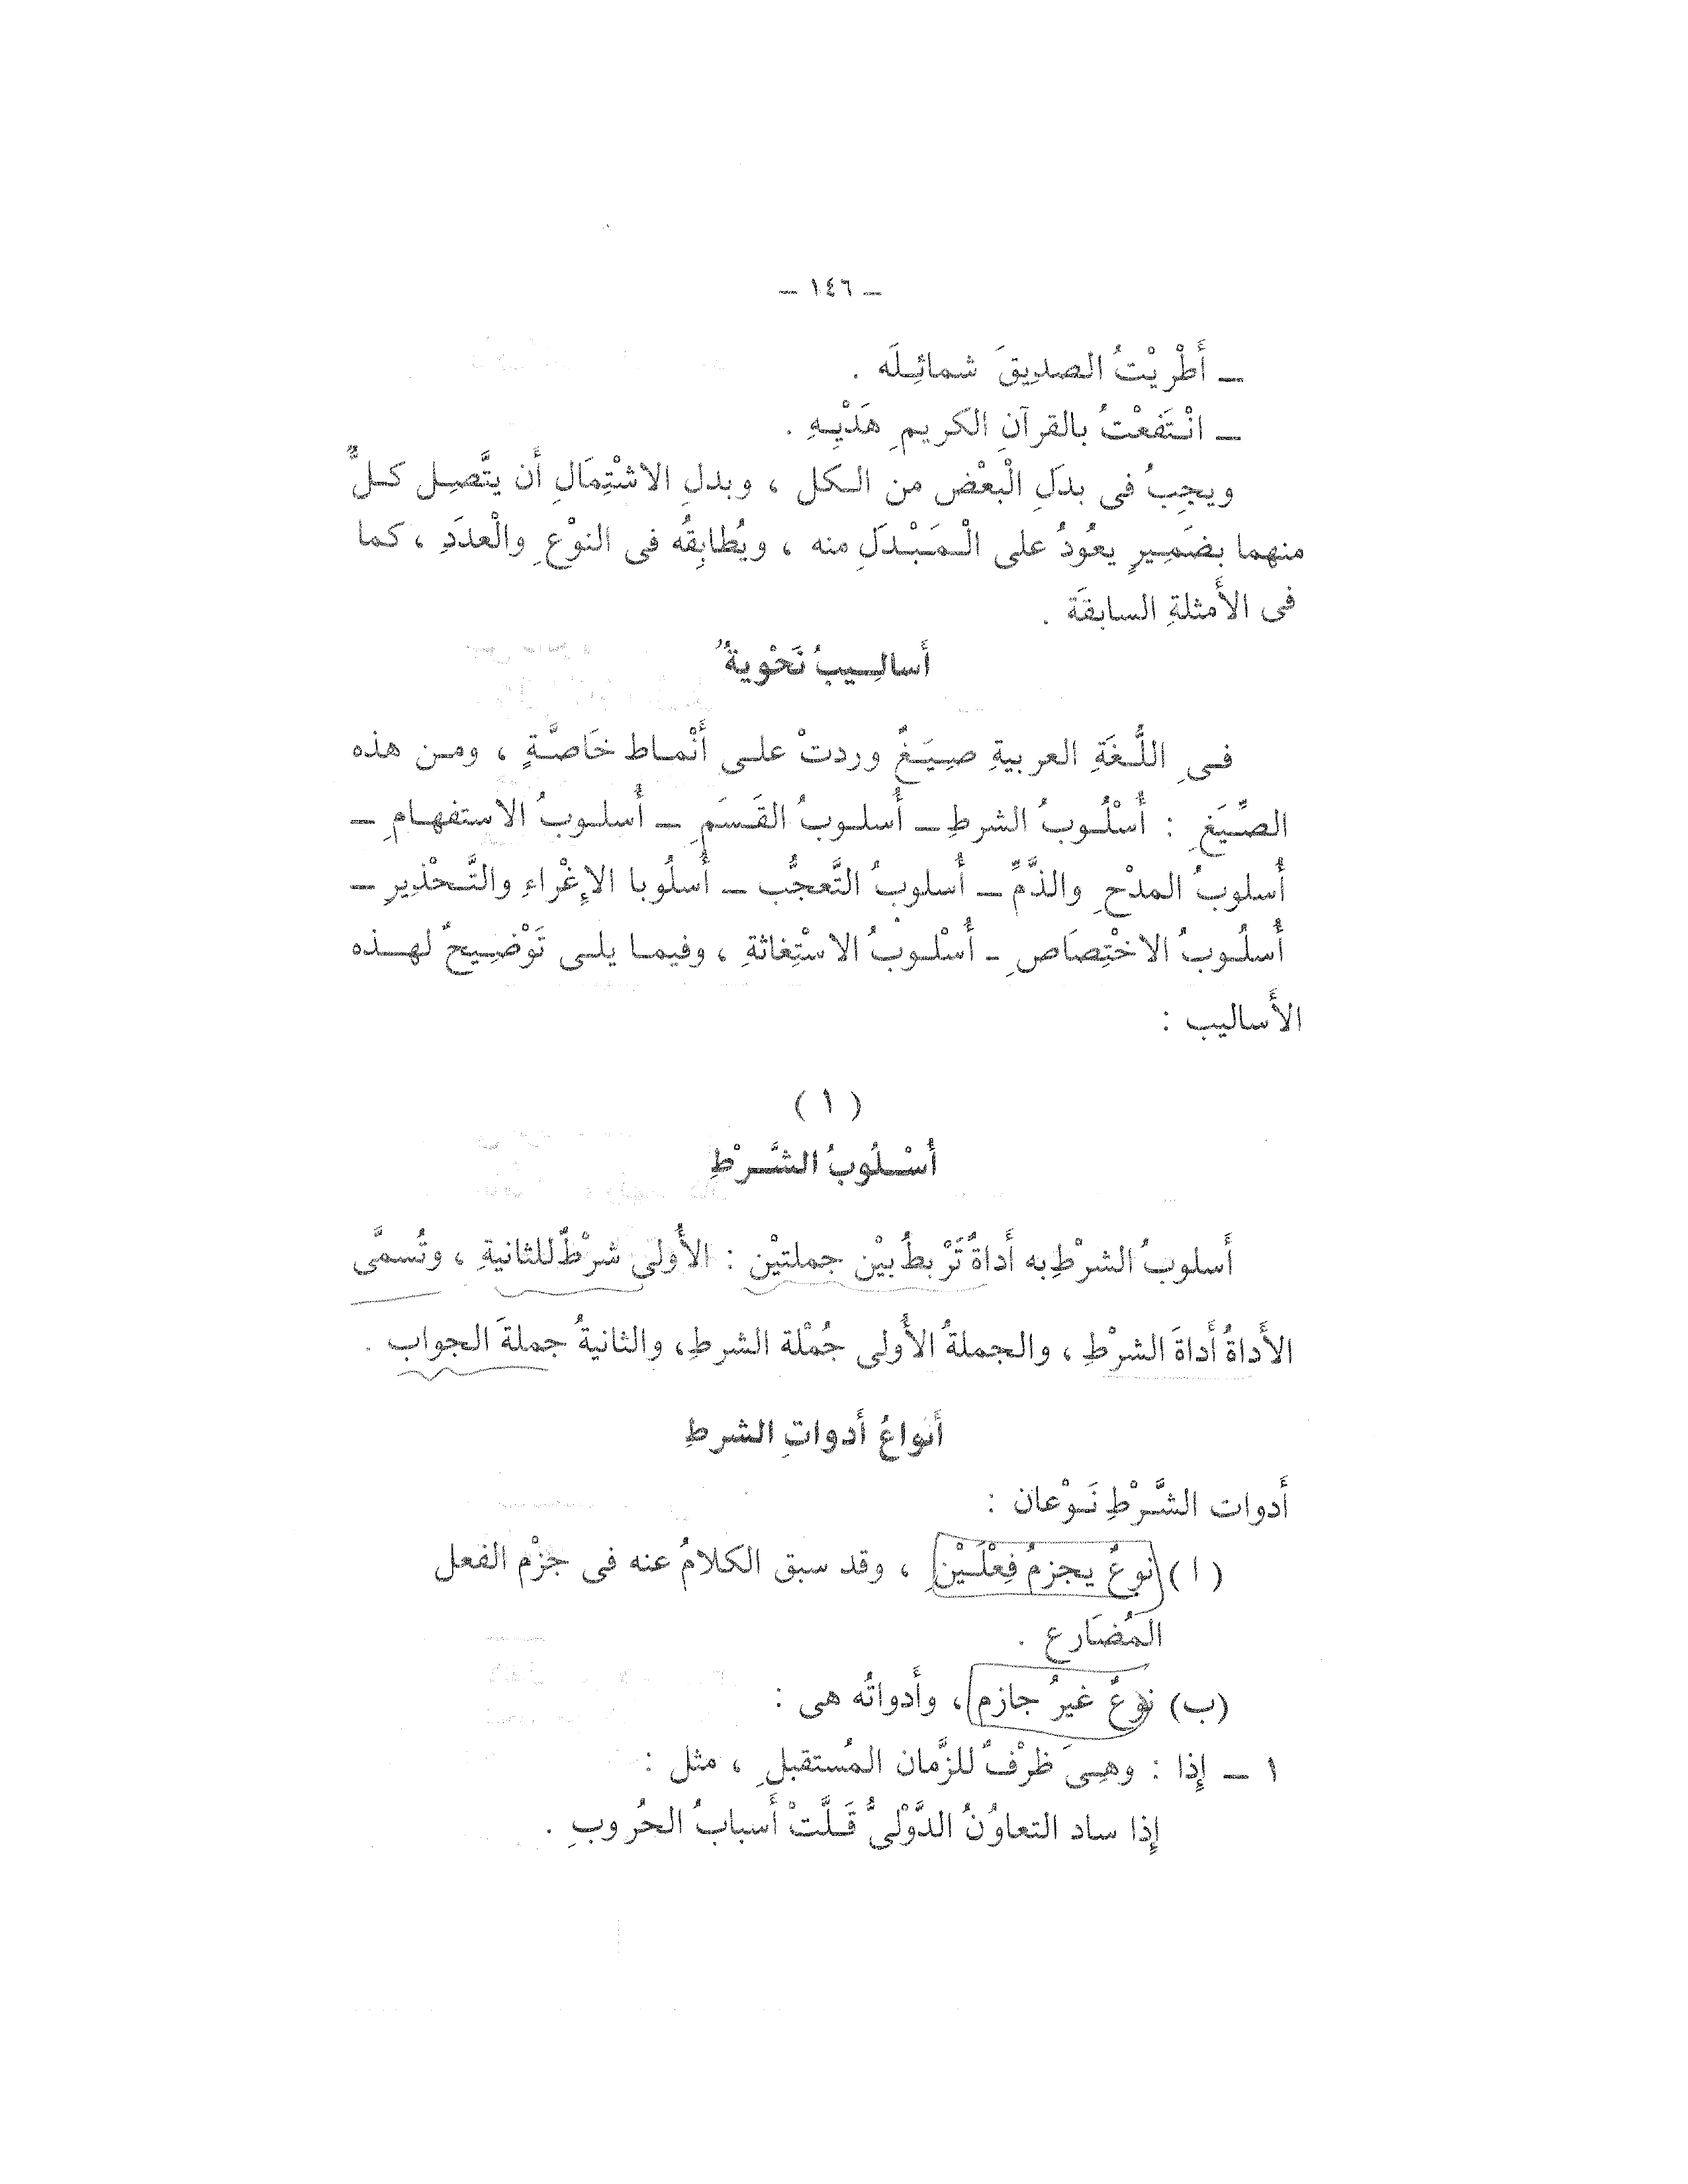 – ١٤٦ –
– أَطْريْتُ الصديقَ شمائِلَه .
– انْتَفعْتُ بالقرآنِ الكريمِ هَدْيِهِ .
ويجِبُ فى بدَلِ الْبعْض من الكل ، وبدلِ الاشْتِمَالِ أَن يتَّصِل كلٌّ
منهما بضَمِيرٍ يعُودُ على الْمَبْدَلِ منه ، ويُطابِقُه فى النوْعِ والْعدَدِ ، كما
فى الأَمثلةِ السابقَة .
أَساليبُ نَحْويةٌ
فى اللُّغَةِ العربيةِ صِيَغٌ وردتْ على أَنْماط خَاصَّةٍ ، ومن هذه
الصِّيَغِ : أُسْلُوبُ الشرطِ – أُسلوبُ القَسَمِ – أُسلوبُ الاستفهامِ –
أُسلوبُ المدْحِ والذَّمِّ – أُسلوبُ التَّعجُّب – أُسلُوبا الإِغْراءِ والتَّحْذِيرِ –
أُسلُوبُ الاخْتِصَاصِ – أُسْلوبُ الاسْتِغاثةِ ، وفيما يلى تَوْضِيحٌ لهذه
الأَساليب :
( ١ )
أُسْلُوبُ الشَّرْطِ
أَسلوبُ الشرْطِ به أَداةٌ تَرْبطُ بيْن جملتيْن : الأُولى شرْطٌ للثانيةِ ، وتُسمَّى
الأَداةُ أَداةَ الشرْطِ ، والجملةُ الأُولى جُمْلة الشرطِ، والثانيةُ جملةَ الجواب .
أَنواعُ أَدواتِ الشرطِ
أَدوات الشَّرْطِ نَوْعان :
( ا ) نوعٌ يجزمُ فِعْلَيْنِ ، وقد سبق الكلامُ عنه فى جزْم الفعل
المُضَارع .
(ب) نوعٌ غيرُ جازم ، وأَدواتُه هى :
١ – إِذا : وهِىَ ظرْفٌ للزَّمان المُستقبلِ ، مثل :
إِذا ساد التعاوُنُ الدَّوْلىُّ قَلَّتْ أَسبابُ الحُروبِ .